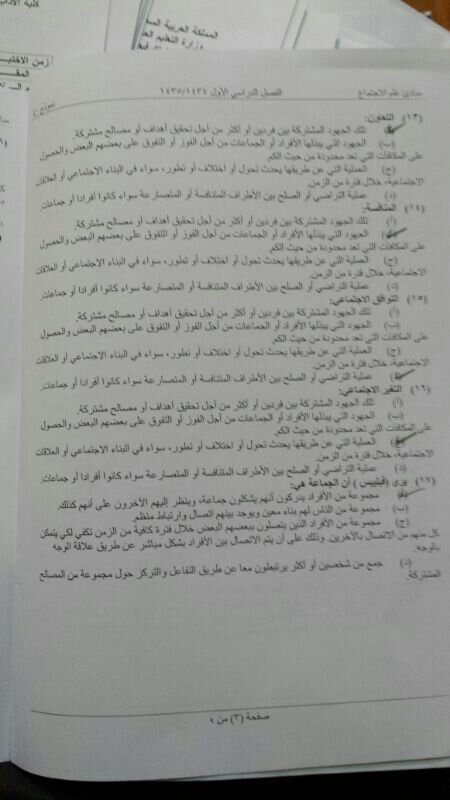 كلية الآداب
المملكة العربية
وزارة التعليم
زمن
ميادين علم الاجتماع
الفصل الدراسي الأول ١٤٣٥/١٤٣٤
نموذج
(١٣) التعاون:
(أ) تلك الجهود المشتركة بين فردين أو أكثر من أجل تحقيق أهداف أو مصالح مشتركة.
(ب) الجهود التي يبذلها الأفراد أو الجماعات من أجل الفوز أو التفوق على بعضهم البعض والحصول
على المكافآت التي تعد محدودة من حيث الكم.
(ج) العملية التي عن طريقها يحدث تحول أو اختلاف أو تطور، سواء في البناء الاجتماعي أو العلاقات
الاجتماعية، خلال فترة من الزمن.
(د) عملية التراضي أو الصلح بين الأطراف المتنافسة أو المتصارعة سواء كانوا أفرادا أو جماعات.
(١٤) المنافسة:
(أ) تلك الجهود المشتركة بين فردين أو أكثر من أجل تحقيق أهداف أو مصالح مشتركة.
(ب) الجهود التي يبذلها الأفراد أو الجماعات من أجل الفوز أو التفوق على بعضهم البعض والحصول
على المكافآت التي تعد محدودة من حيث الكم.
(ج) العملية التي عن طريقها يحدث تحول أو اختلاف أو تطور، سواء في البناء الاجتماعي أو العلاقات
الاجتماعية، خلال فترة من الزمن.
(د) عملية التراضي أو الصلح بين الأطراف المتنافسة أو المتصارعة سواء كانوا أفرادا أو جماعات.
(١٥) التوافق الاجتماعي:
(أ) تلك الجهود المشتركة بين فردين أو أكثر من أجل تحقيق أهداف أو مصالح مشتركة.
(ب) الجهود التي يبذلها الأفراد أو الجماعات من أجل الفوز أو التفوق على بعضهم البعض والحصول
على المكافآت التي تعد محدودة من حيث الكم.
(ج) العملية التي عن طريقها يحدث تحول أو اختلاف أو تطور، سواء في البناء الاجتماعي أو العلاقات
الاجتماعية، خلال فترة من الزمن.
(د) عملية التراضي أو الصلح بين الأطراف المتنافسة أو المتصارعة سواء كانوا أفرادا أو جماعات.
(١٦) التغير الاجتماعي:
(أ) تلك الجهود المشتركة بين فردين أو أكثر من أجل تحقيق أهداف أو مصالح مشتركة.
(ب) الجهود التي يبذلها الأفراد أو الجماعات من أجل الفوز أو التفوق على بعضهم البعض والحصول
على المكافآت التي تعد محدودة من حيث الكم.
(ج) العملية التي عن طريقها يحدث تحول أو اختلاف أو تطور، سواء في البناء الاجتماعي أو العلاقات
الاجتماعية، خلال فترة من الزمن.
(د) عملية التراضي أو الصلح بين الأطراف المتنافسة أو المتصارعة سواء كانوا أفرادا أو جماعات.
(١٧) يرى (فيليبس) أن الجماعة هي:
(أ) مجموعة من الأفراد يدركون أنهم يشكلون جماعة، وينظر إليهم الآخرون على أنهم كذلك.
(ب) مجموعة من الناس لهم بناء معين ويوجد بينهم اتصال وارتباط منظم.
(ج) مجموعة من الأفراد الذين يتصلون ببعضهم البعض خلال فترة كافية من الزمن تكفي لكي يتمكن
كل منهم من الاتصال بالآخرين. وذلك على أن يتم الاتصال بين الأفراد بشكل مباشر عن طريق علاقة الوجه
بالوجه.
(د) جمع من شخصين أو أكثر يرتبطون معا عن طريق التفاعل والتركز حول مجموعة من المصالح
المشتركة.
صفحة (٣) من ٩